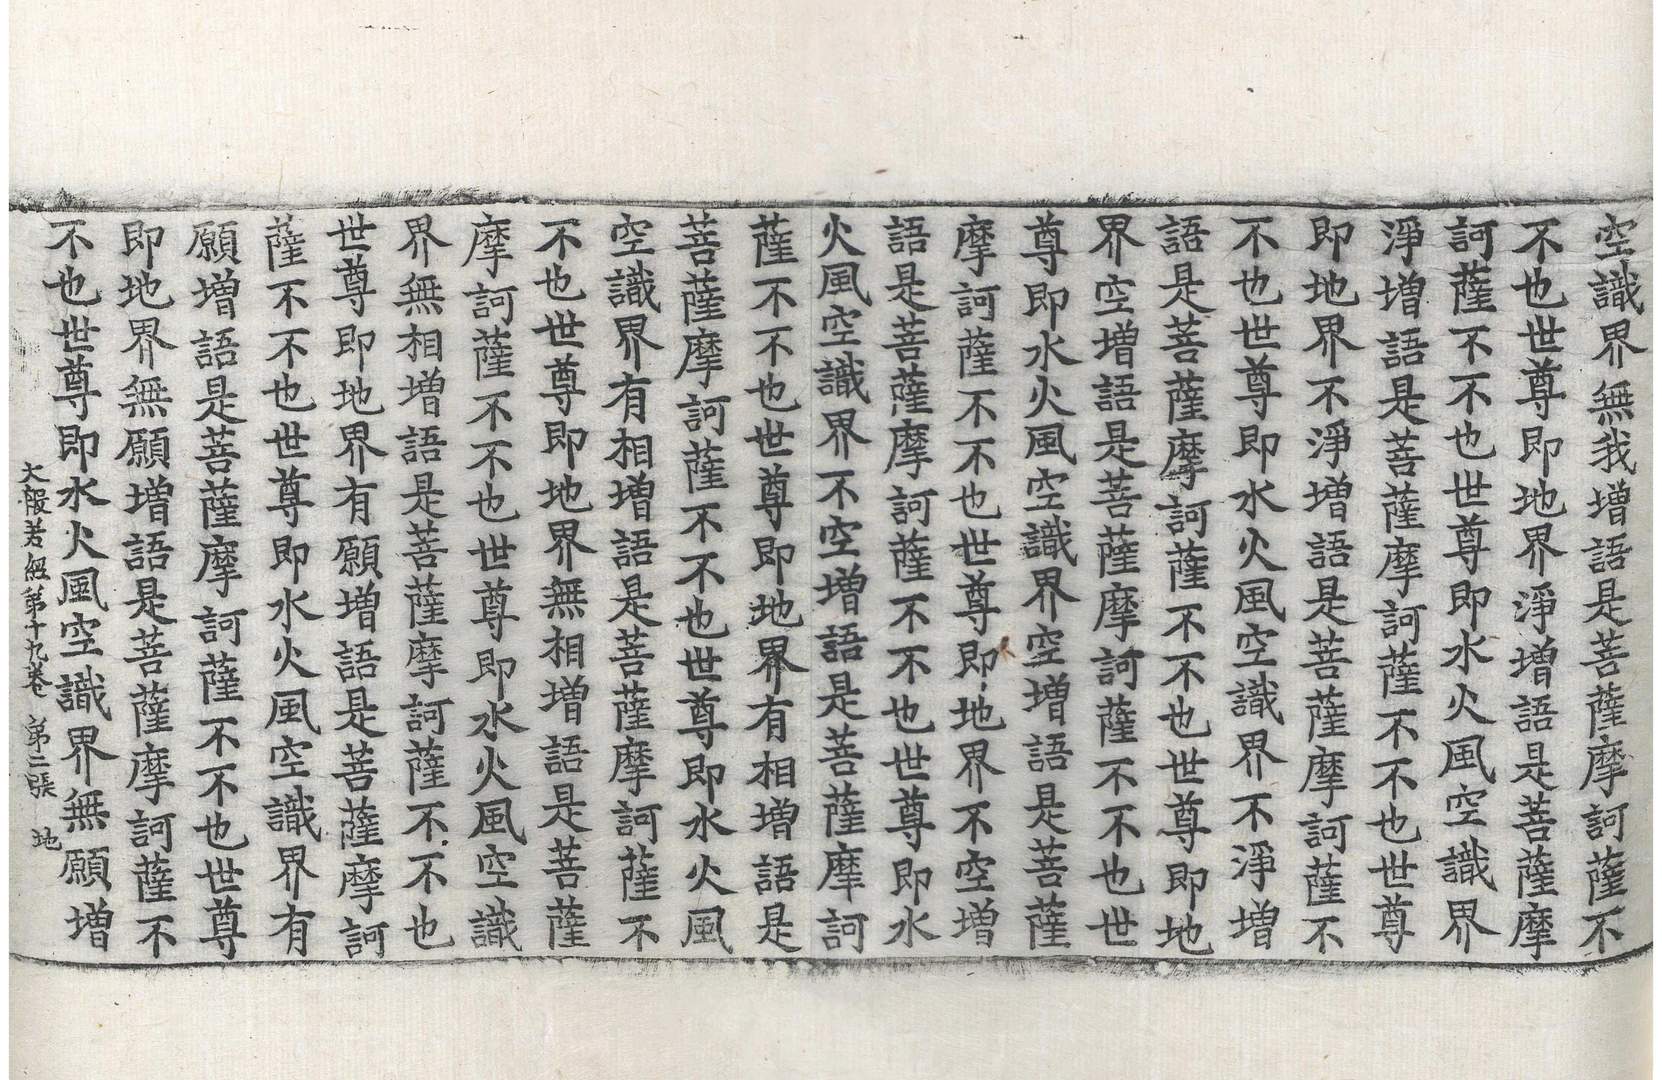 空識界無我增語是菩薩摩訶薩不
不也世尊即地界淨增語是菩薩摩
訶薩不不也世尊即水火風空識界
淨增語是菩薩摩訶薩不不也世尊
即地界不淨增語是菩薩摩訶薩不
不也世尊即水火風空識界不淨增
語是菩薩摩訶薩不不也世尊即地
界空增語是菩薩摩訶薩不不也世
尊即水火風空識界空增語是菩薩
摩訶薩不不也世尊即地界不空增
語是菩薩摩訶薩不不也世尊即水
火風空識界不空增語是菩薩摩訶
薩不不也世尊即地界有相增語是
菩薩摩訶薩不不也世尊即水火風
空識界有相增語是菩薩摩訶薩不
不也世尊即地界無相增語是菩薩
摩訶薩不不也世尊即水火風空識
界無相增語是菩薩摩訶薩不不也
世尊即地界有願增語是菩薩摩訶
薩不不也世尊即水火風空識界有
願增語是菩薩摩訶薩不不也世尊
即地界無願增語是菩薩摩訶薩不
不也世尊即水火風空識界無願增
大般若經第十九卷 第二張 地